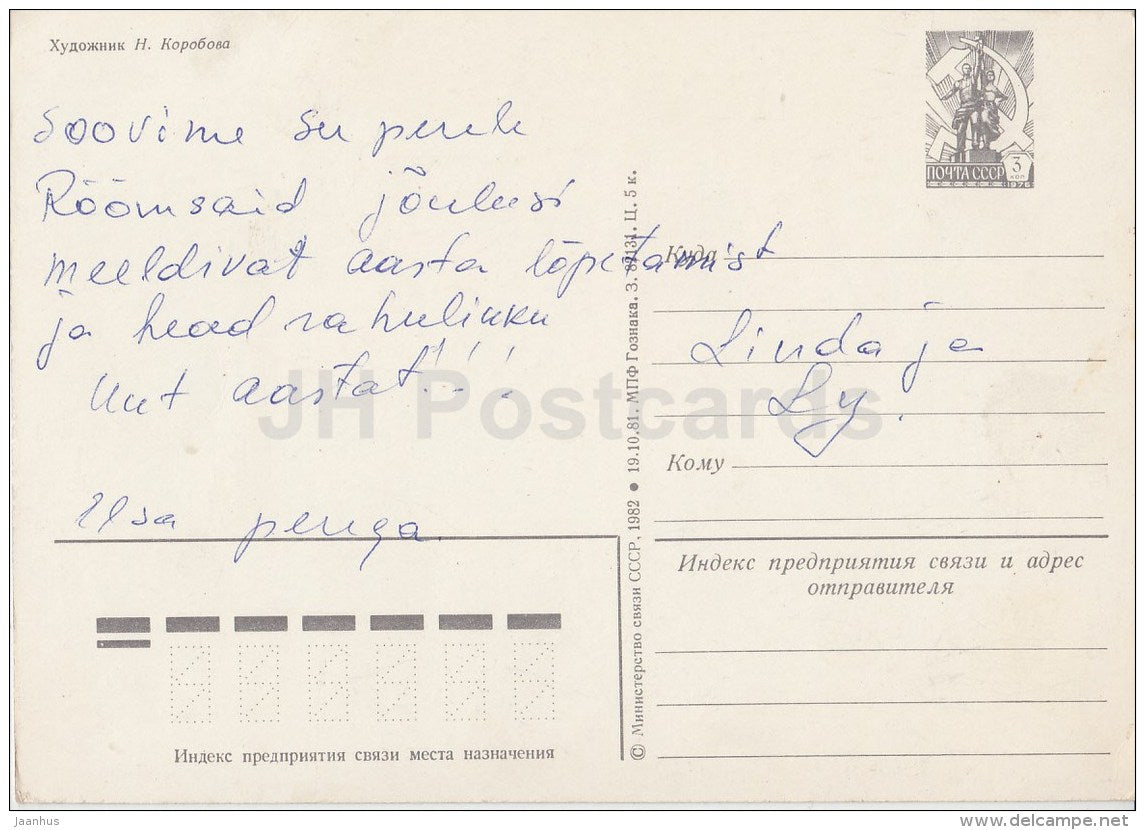 Художник Н. Коробова
ПОЧТА СССР 3 КОП
1976
Soovime su perele
Rõõmsaid jõulusi
meeldivat aasta lõpetamist
ja head rahulikku
uut aastat!!!
Elsa perega.
Куда
Linda ja
Ly.
Кому
Индекс предприятия связи и адрес
отправителя
Индекс предприятия связи места назначения
© Министерство связи СССР, 1982 ● 19.10.81. МПФ Гознака. З. 82131. Ц. 5 к.
JH Postcards
Jaanhus
www.delcampe.net